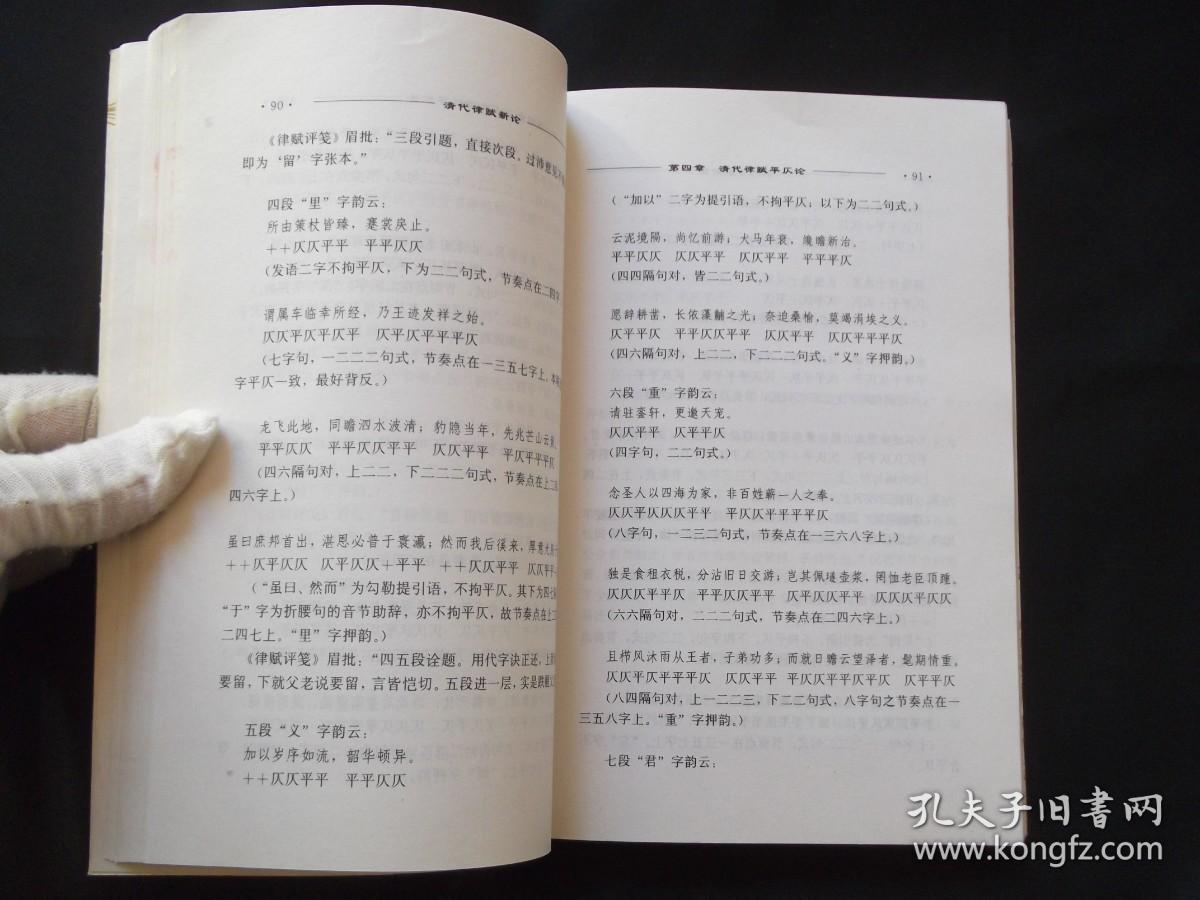 ·90· 清代律赋新论
《律赋评笺》眉批：“三段引题，直接次段，过沛意见
即为‘留’字张本。”
四段“里”字韵云：
所由策杖皆臻，蹇裳戾止。
＋＋仄仄平平 平平仄仄
（发语二字不拘平仄，下为二二句式，节奏点在二四字
谓属车临幸所经，乃王迹发祥之始。
仄仄平仄平仄平 仄平仄平平平仄
（七字句，一二二二句式，节奏点在一三五七字上。
字平仄一致，最好背反。）
龙飞此地，同瞻泗水波清；豹隐当年，先兆芒山云
平平仄仄 平平仄仄平平 仄仄平平 平仄平平平仄
（四六隔句对，上二二，下二二二句式，节奏点在上二
四六字上。）
虽曰庶邦首出，湛恩必普于寰瀛；然而我后徯来，厚意
＋＋仄平仄仄 仄平仄仄＋平平 ＋＋仄仄平平 仄仄平
（“虽曰、然而”为勾勒提引语，不拘平仄。其下为四七
“于”字为折腰句的音节助辞，亦不拘平仄，故节奏点在上二
二四七上。“里”字押韵。）
《律赋评笺》眉批：“四五段诠题。用代字诀正还，上
要留，下就父老说要留，言皆恺切。五段进一层，实是跌
五段“义”字韵云：
加以岁序如流，韶华顿异。
＋＋仄仄平平 平平仄仄
第四章 清代律赋平仄论 ·91·
（“加以”二字为提引语，不拘平仄；以下为二二句式。）
云泥境隔，尚忆前游；犬马年衰，纔瞻新治。
平平仄仄 仄仄平平 仄仄平平 平平平仄
（四四隔句对，皆二二句式。）
愿辞耕凿，长依藻黼之光；奈迫桑榆，莫竭涓埃之义。
仄平平仄 平平仄仄平平 仄仄平平 仄仄平平平仄
（四六隔句对，上二二，下二二二句式。“义”字押韵。）
六段“重”字韵云：
请驻銮轩，更邀天宠。
仄仄平平 仄平平仄
（四字句，二二句式。）
念圣人以四海为家，非百姓蕲一人之奉。
仄仄平仄仄仄平平 平仄仄平平平平仄
（八字句，一二三二句式，节奏点在一三六八字上。）
独是食租衣税，分沾旧日交游；岂其佩璲壶浆，罔恤老臣顶踵。
仄仄仄平平仄 平平仄仄平平 仄平仄仄平平 仄仄仄平仄仄
（六六隔句对，二二二句式，节奏点在二四六字上。）
且栉风沐雨从王者，子弟功多；而就日瞻云望泽者，髦期情重。
仄仄平仄平平平仄 仄仄平平 平仄仄平平仄仄平仄 仄平平仄
（八四隔句对，上一二二三，下二二句式，八字句之节奏点在一
三五八字上。“重”字押韵。）
七段“君”字韵云：
孔夫子旧书网
www.kongfz.com